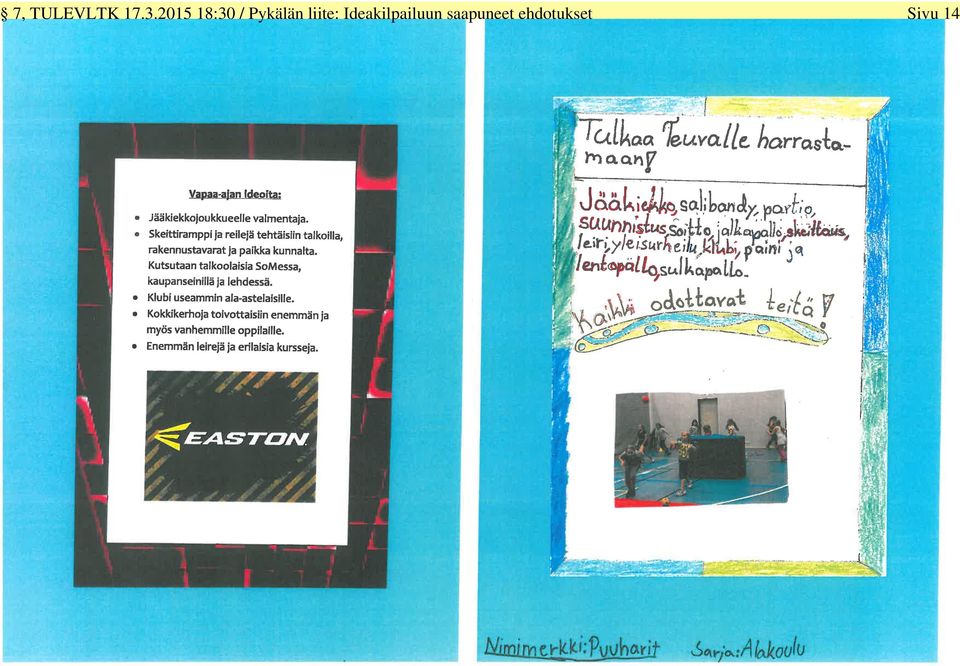 § 7, TULEVLTK 17.3.2015 18:30 / Pykälän liite: Ideakilpailuun saapuneet ehdotukset Sivu 14
Vapaa-ajan ideoita:
• Jääkiekkojoukkueelle valmentaja.
• Skeittiramppi ja reilejä tehtäisiin talkoilla,
rakennustavarat ja paikka kunnalta.
Kutsutaan talkoolaisia SoMessa,
kaupanseinillä ja lehdessä.
• Klubi useammin ala-astelaisille.
• Kokkikerhoja toivottaisiin enemmän ja
myös vanhemmille oppilaille.
• Enemmän leirejä ja erilaisia kursseja.
EASTON
Tulkaa Teuvalle harrasta-
maan!
Jääkiekko, salibandy, partio,
suunnistus, soitto, jalkapallo, skeittaus,
leiri, yleisurheilu, klubi, paini ja
lentopallo, sulkapallo.
Kaikki odottavat teitä!
Nimimerkki: Puuharit Sarja: Alakoulu